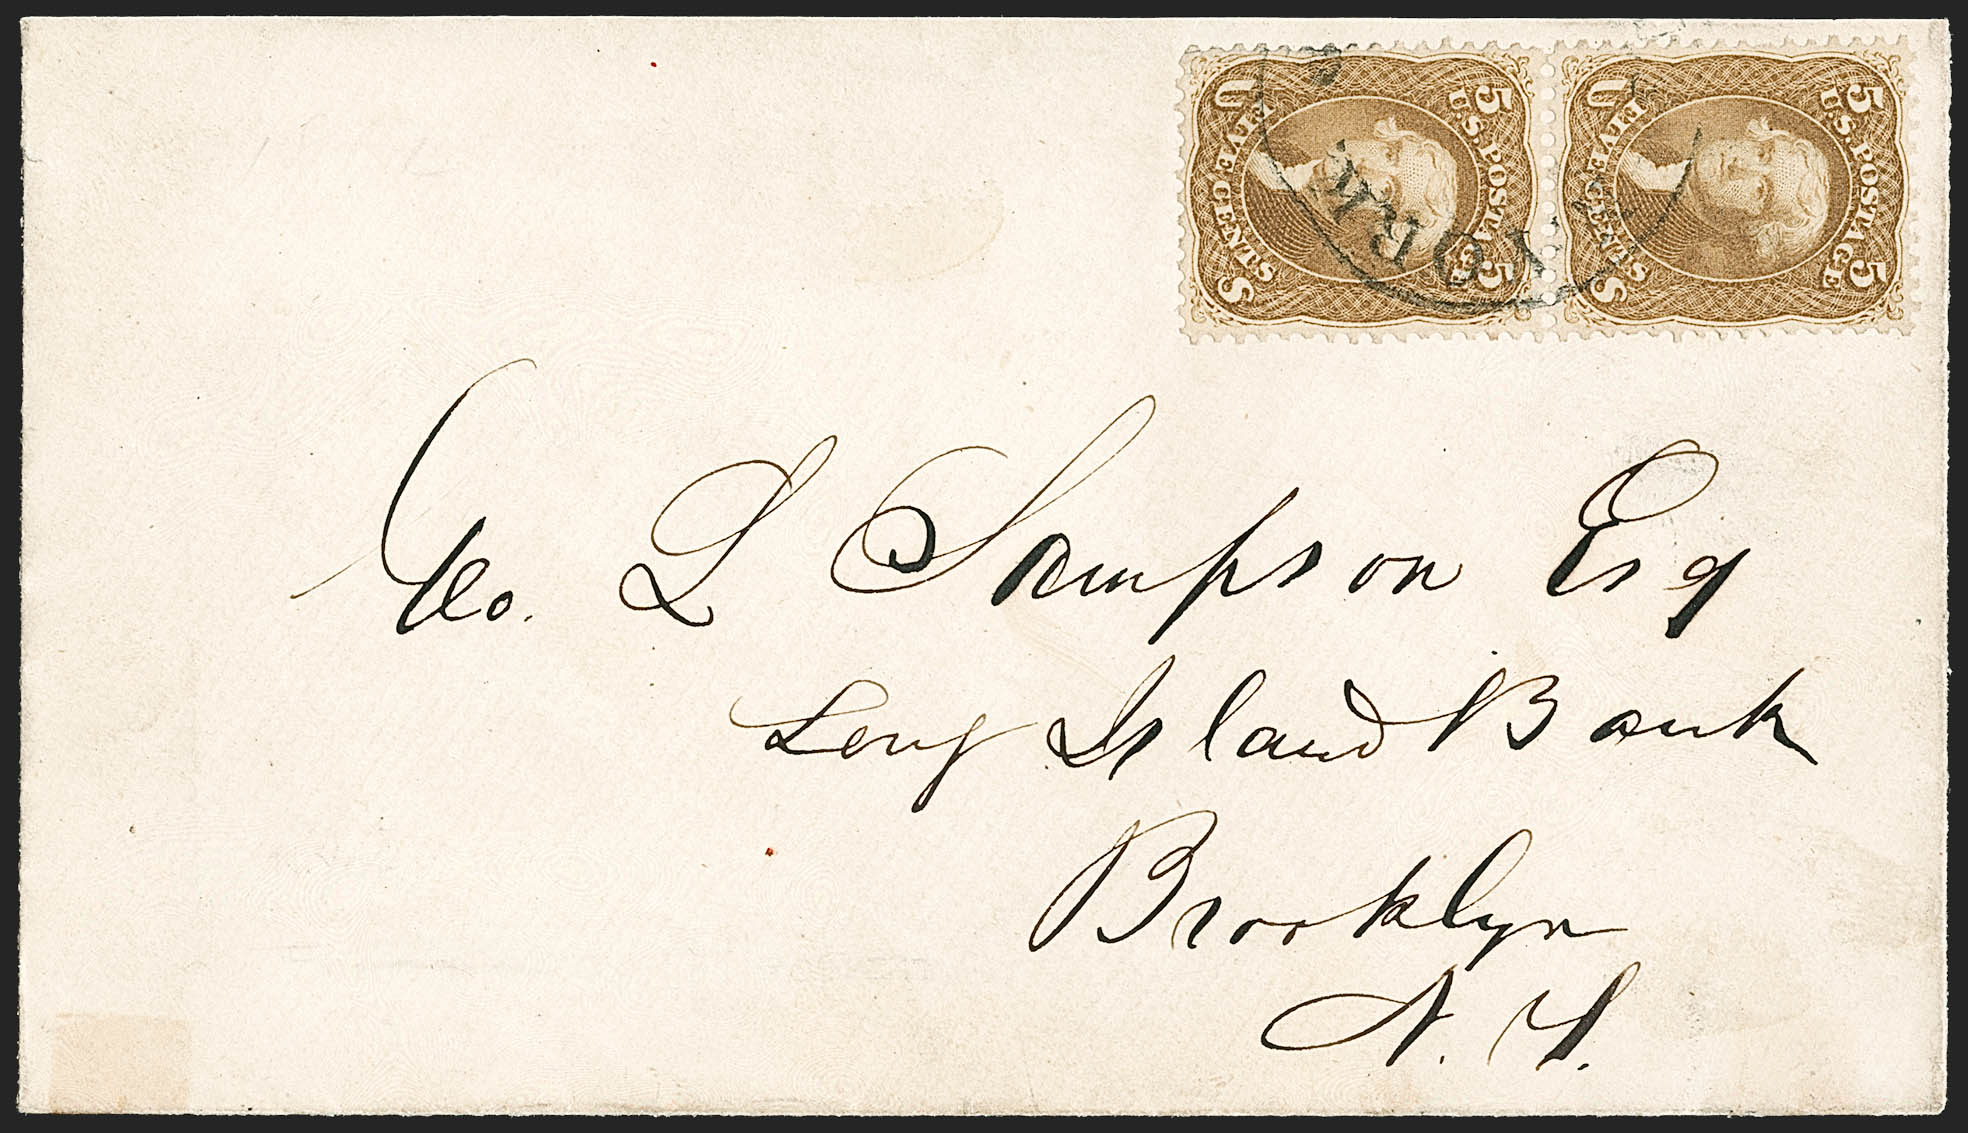 5 5
U.S. POSTAGE
FIVE CENTS
U S
5 5
U.S. POSTAGE
FIVE CENTS
U S
YORK
Geo. L Sampson Esq
Long Island Bank
Brooklyn
N. Y.